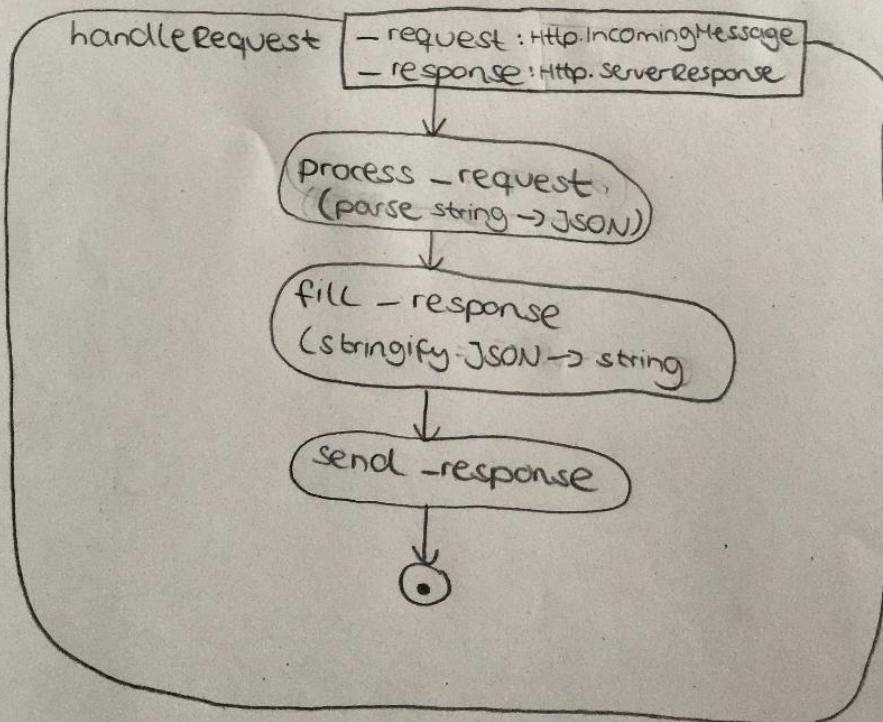 handleRequest
_request: Http.IncomingMessage
_response: Http.ServerResponse
process _request
(parse string -> JSON)
fill _response
(stringify JSON -> string
send _response